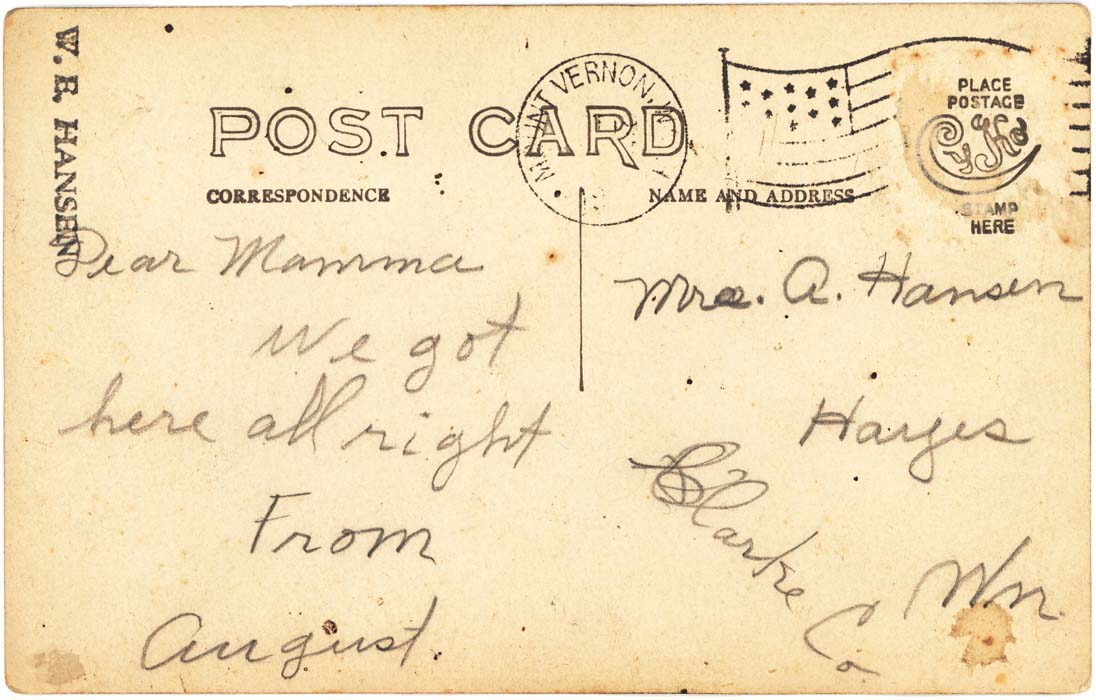 W. E. HANSEN
POST CARD
MOUNT VERNON, W
CORRESPONDENCE
NAME AND ADDRESS
PLACE
POSTAGE
CyKo
STAMP
HERE
Dear Mamma
We got
here all right
From
August.
Mrs. A. Hansen
Hayes
Clarke Co
Wn.